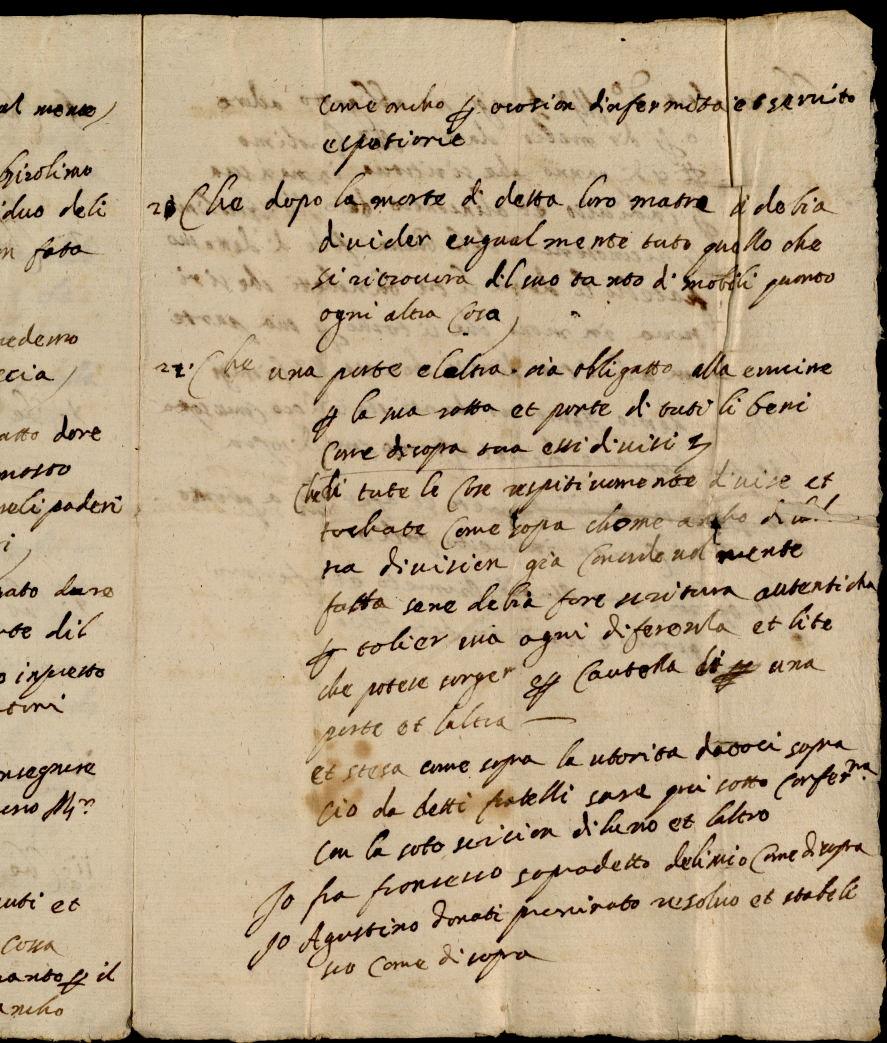 al meno
hirolimo
iduo deli
n fata
medemo
ecia
atto dore
mosto
neli poderi
i
nato dare
rte dil
o inpresto
tori
nsegnare
auti et
cossa
uanto ꝑ il
ancho
come ancho ꝑ ocosion d'infermita et servito
espetiorie
Che dopo la morte di detta loro matre si debia
divider eugualmente tuto quello che
si ritrovera dil suo tanto di mobili quanto
ogni altra cosa
Che una parte e laltra sia obligatto alla
ꝑ la sua ratta et parte di tuti li beni
come di sopra sua essi divisi
Che di tute le cose respitivamente divise et
tochate come sopra chome ancho di
sia division gia
fatta sene debia fare scritura autenticha
ꝑ tolier via ogni diferensia et lite
che potese sorger ꝑ cautella di una
parte et laltra
et stesa come sopra la utorita datoci sopra
cio da detti fratelli sara qui sotto
con la soto scricion di luno et laltro
Io fra francesco sopradetto come di sopra
Io Agustino Donati prenominato resolvo et stabeli
sco come di sopra